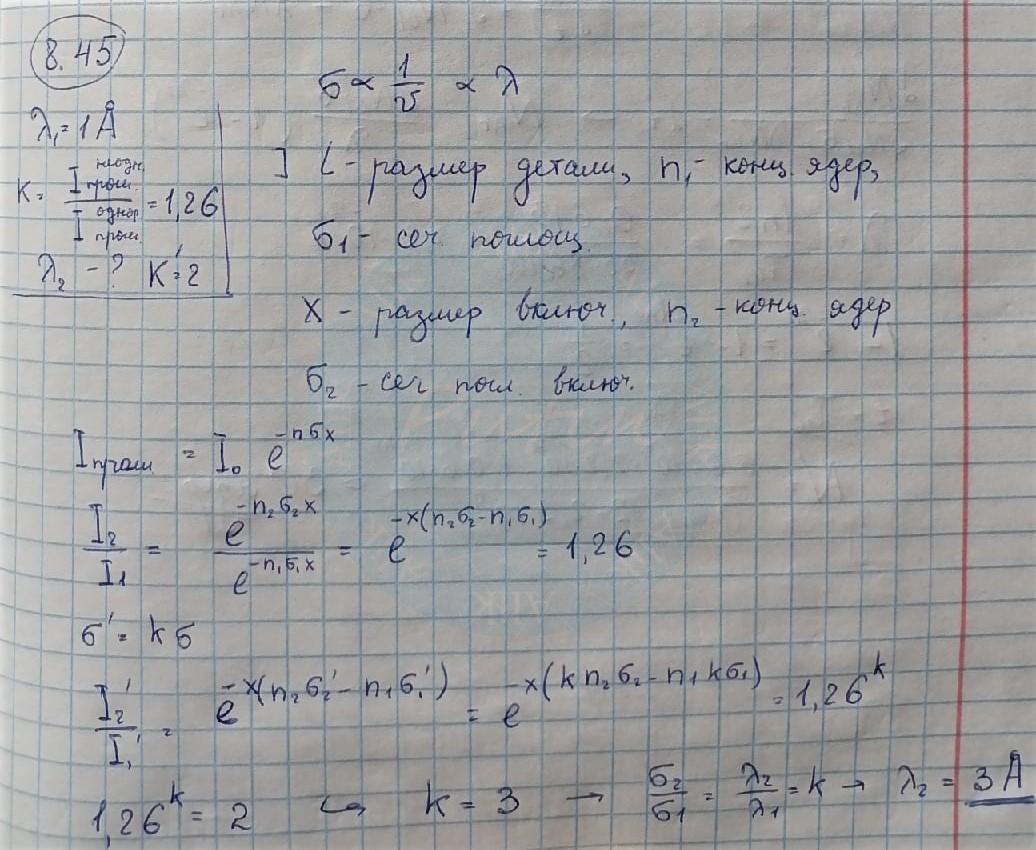 8.45
σ ∝ 1/v ∝ λ
λ₁ = 1 Å
K = I неодн. прош. / I однор прош. = 1,26
λ₂ - ? K' = 2
] L - размер детали, n₁ - конц. ядер,
σ₁ - сеч поглощ.
X - размер включ., n₂ - конц. ядер
σ₂ - сеч погл. включ.
I прош = I₀ e^(-nσx)
I₂/I₁ = e^(-n₂σ₂x) / e^(-n₁σ₁x) = e^(-x(n₂σ₂ - n₁σ₁)) = 1,26
σ' = kσ
I₂'/I₁' = e^(-x(n₂σ₂' - n₁σ₁')) = e^(-x(k n₂σ₂ - n₁kσ₁)) = 1,26^k
1,26^k = 2 ↪ k = 3 → σ₂/σ₁ = λ₂/λ₁ = k → λ₂ = 3 Å